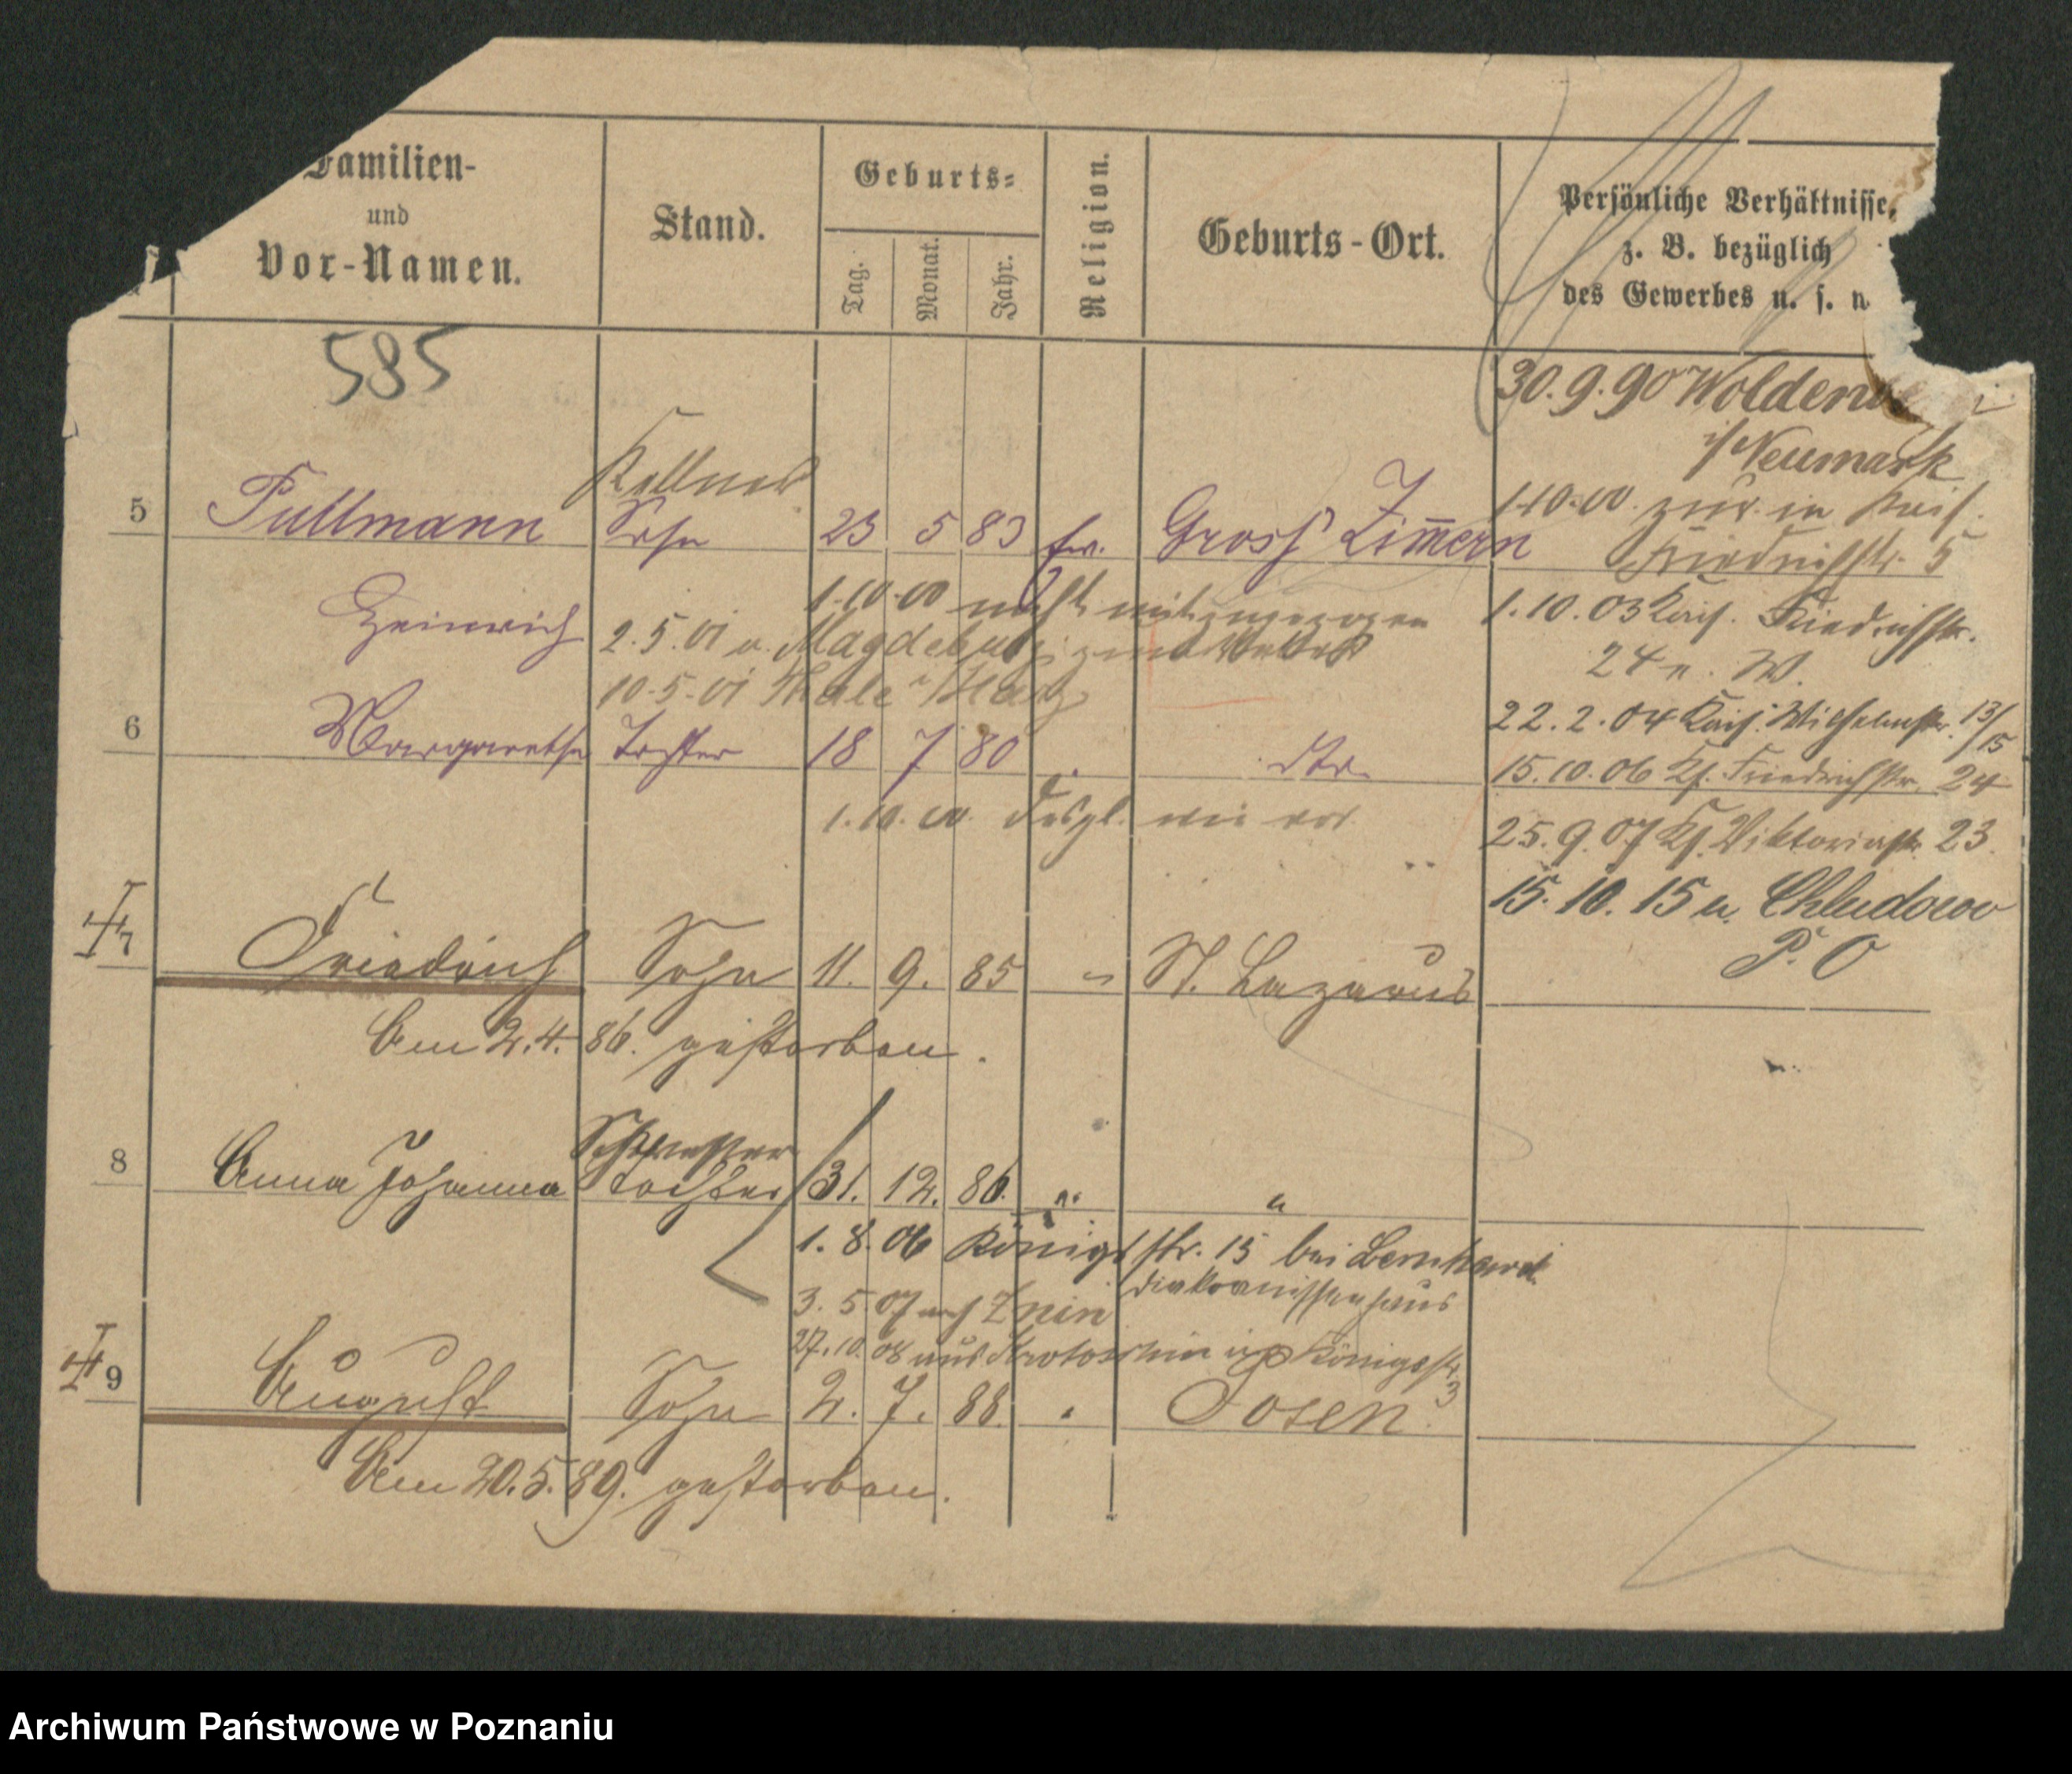 Familien-
und
Vor-Namen.
Stand.
Geburts-
Tag.
Monat.
Jahr.
Religion.
Geburts-Ort.
Persönliche Verhältnisse,
z. B. bezüglich
des Gewerbes u. s. w
585
30.9.90 Woldenb
i/Neumark
Kellner
5 Pullmann Sohn 23 5 83 ev. Gross Zimmern
1.10.00. zur. in Kais.
Friedrichstr. 5
Heinrich
1.10.00 nicht mitzugezogen
2.5.01 v. Magdeburg
10.5.01 Thale i/Harz
1.10.03 Kais. Friedrichstr.
24 n. W.
6 Margarethe Tochter 18 7 80 dto.
22.2.04 Kais. Wilhelmstr. 13/15
15.10.06 Kf. Friedrichstr. 24
1.10.00. desgl. wie vor
25.9.07 Kf. Viktoriastr. 23
15.10.15 n. Chludowo
P. O
7 Friedrich Sohn 11. 9. 85 " St. Lazarus
Am 2.4.86. gestorben.
Schwester
8 Anna Johanna Tochter 31. 12. 86. " "
1.8.06 Königstr. 15 bei Bernhard
Diakonissenhaus
3.5.07 nach Znin
27.10.08 aus Krotoschin Königsstr.
3
9 August Sohn 2. 7. 88. " Posen.
Am 20.5.89. gestorben.
Archiwum Państwowe w Poznaniu